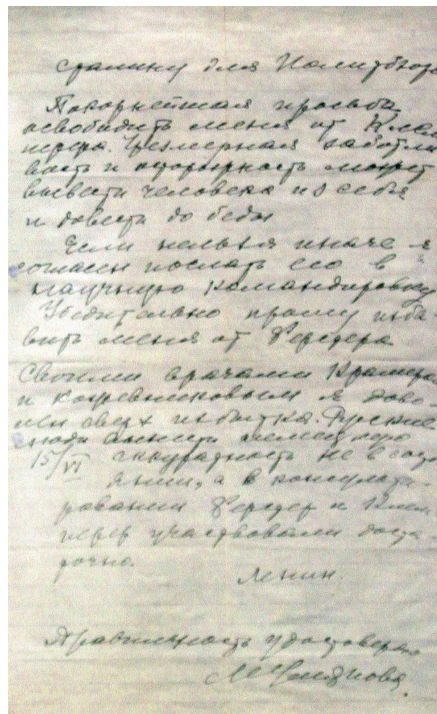 Сталину для Политбюро
Покорнейшая просьба
освободить меня от Клем
перера. Чрезмерная заботли
вость и осторожность может
вывести человека из себя
и довести до беды
Если нельзя иначе я
согласен послать его в
научную командировку
Убедительно прошу изба
вить меня от Ферстера
Своими врачами Крамером
и Кожевниковым я дово
лен сверх избытка. Русские
люди вынести немецкую
15/VI аккуратность не в состо
янии, а в консульти
ровании Ферстер и Клем
перер участвовали доста
точно.
Ленин.
Правильность удостоверяю
М. Ульянова.